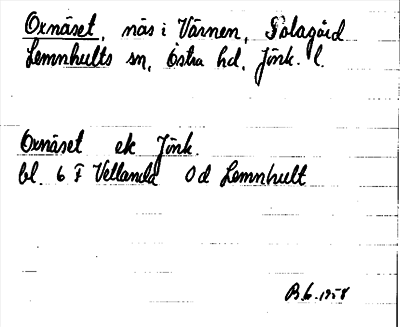 Oxnäset, näs i Värnen, Polagård
Lemnhults sn, Östra hd, Jönk. l.
Oxnäset ek Jönk.
bl. 6 F Vetlanda Od Lemnhult
1958